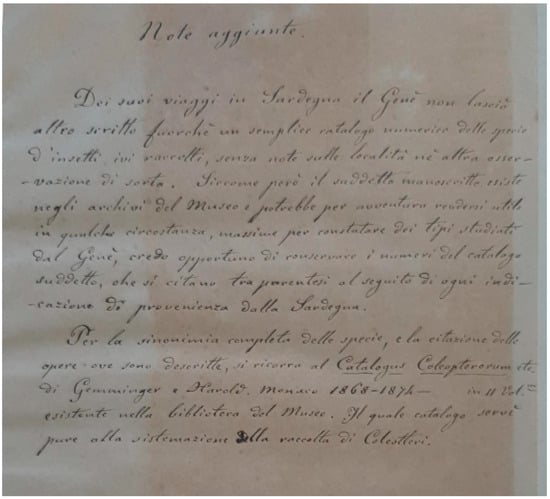 Note aggiunte.
Dei suoi viaggi in Sardegna il Genè non lasciò
altro scritto fuorchè un semplice catalogo numerico delle specie
d'insetti ivi raccolti, senza note sulle località nè altra osser-
-vazione di sorta. Siccome però il suddetto manoscritto esiste
negli archivi del Museo e potrebbe per avventura rendersi utile
in qualche circostanza, massime per constatare dei tipi studiati
dal Genè, credo opportuno di conservare i numeri del catalogo
suddetto, che si citano tra parentesi al seguito di ogni indi-
-cazione di provenienza dalla Sardegna.
Per la sinonimia completa delle specie, e la citazione delle
opere ove sono descritte, si ricorra al Catalogus Coleopterorum etc.
di Gemminger e Harold. Monaco 1868-1874 — in 11 Vol.
esistente nella biblioteca del Museo. Il quale catalogo servì
pure alla sistemazione della raccolta di Coleotteri.